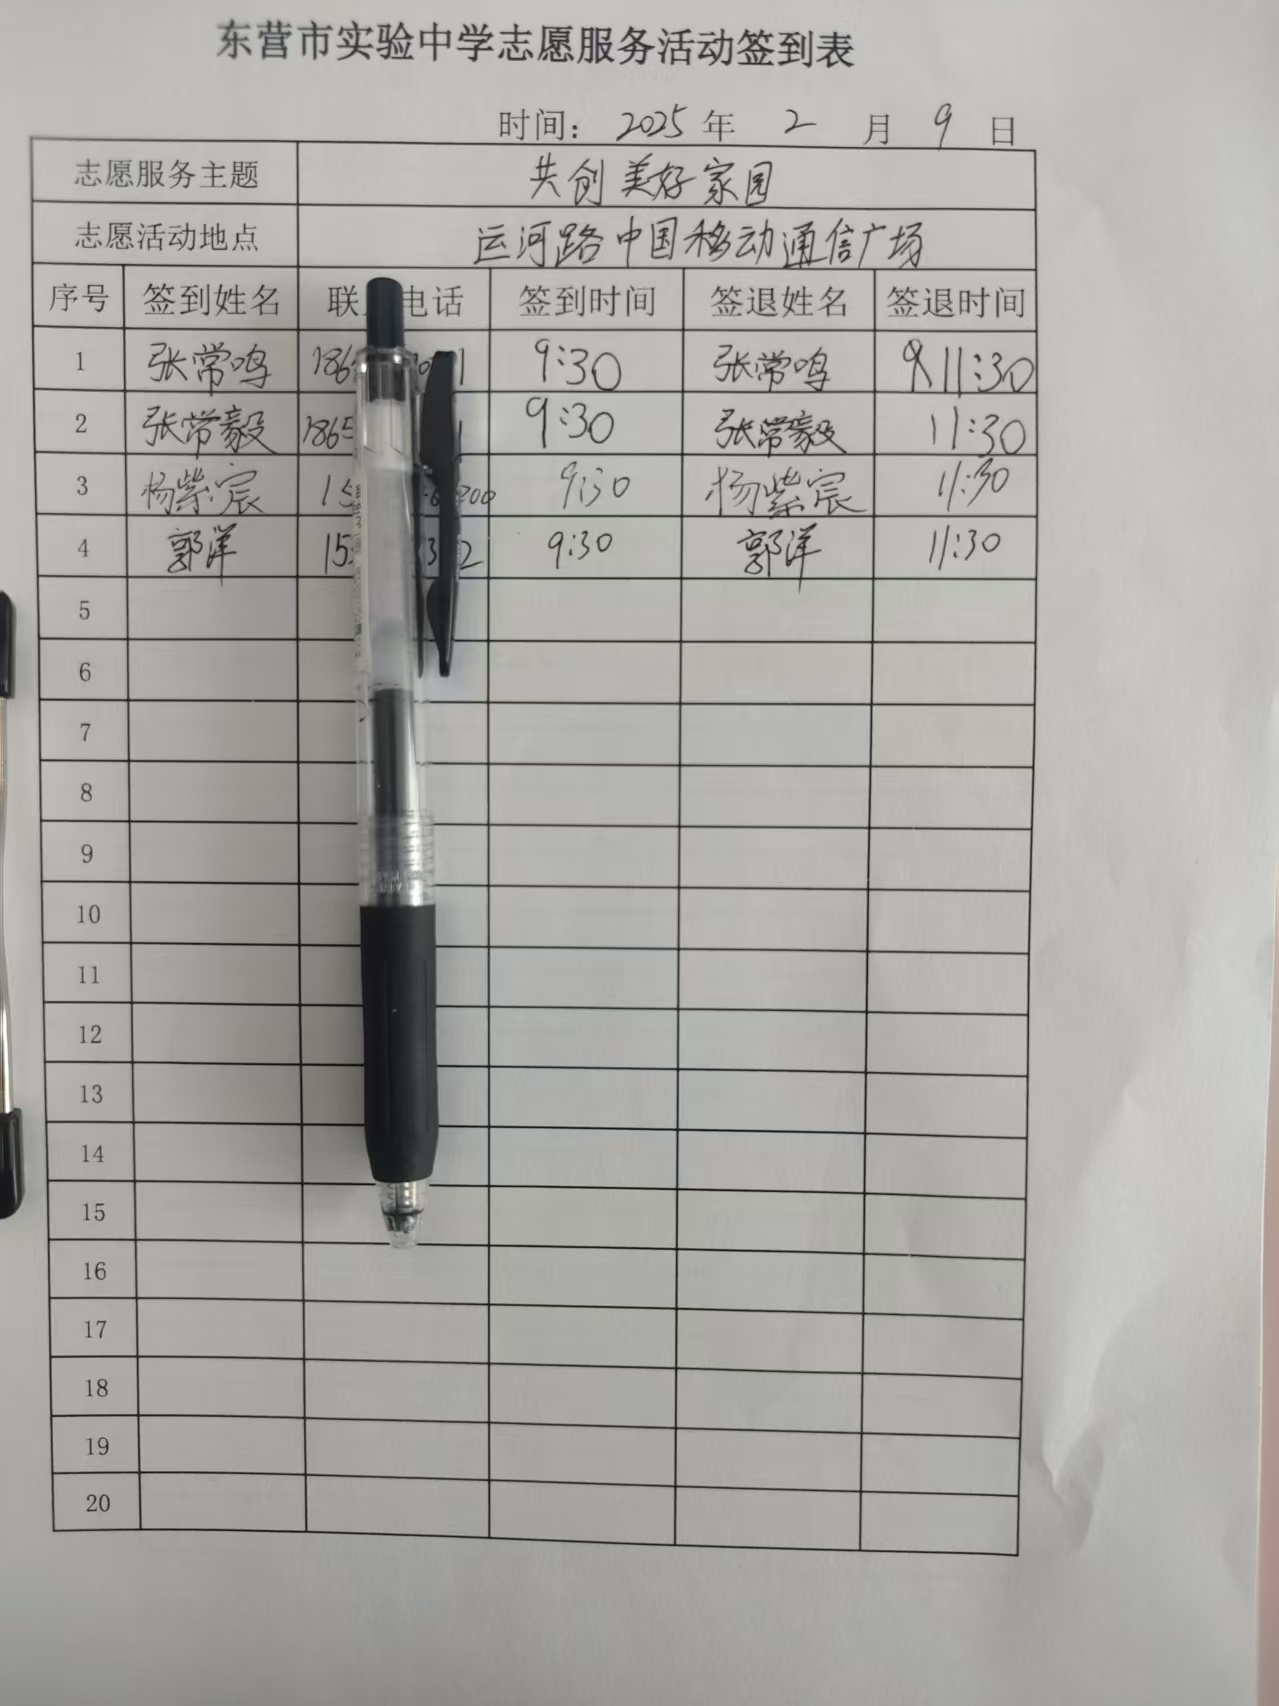 东营市实验中学志愿服务活动签到表
时间： 2025 年 2 月 9 日
志愿服务主题 共创美好家园
志愿活动地点 运河路中国移动通信广场
序号 签到姓名 联 电话 签到时间 签退姓名 签退时间
1 张常鸣 186 1 9:30 张常鸣 11:30
2 张常毅 1865 1 9:30 张常毅 11:30
3 杨紫宸 15 200 9:30 杨紫宸 11:30
4 郭洋 15 3 2 9:30 郭洋 11:30
5
6
7
8
9
10
11
12
13
14
15
16
17
18
19
20